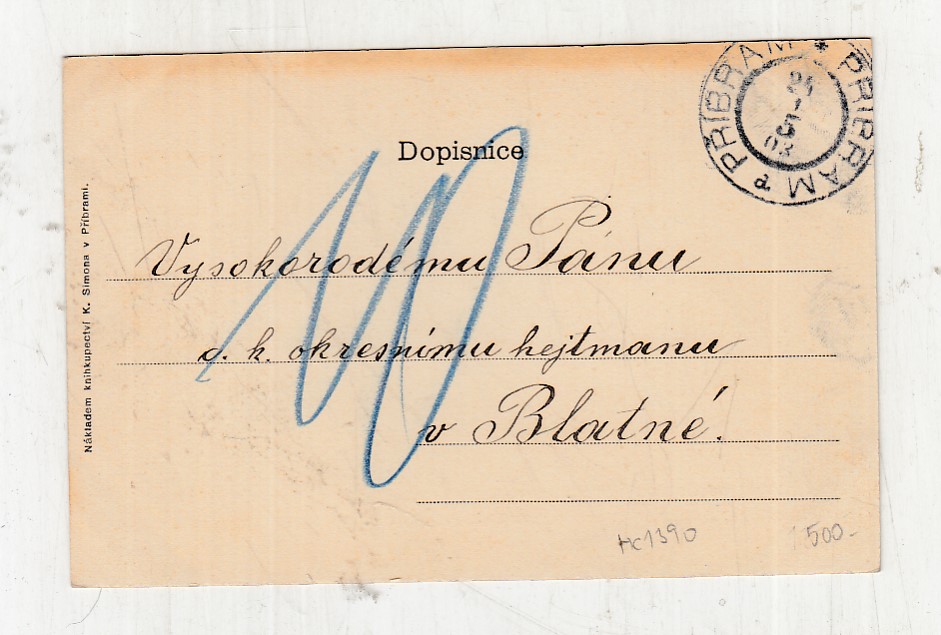 PŘÍBRAM * PŘIBRAM
24
5
03
Dopisnice
10
Vysokorodému Pánu
c. k. okresnímu hejtmanu
v Blatné.
Nákladem knihkupectví K. Simona v Příbrami.
HC1390
1500-